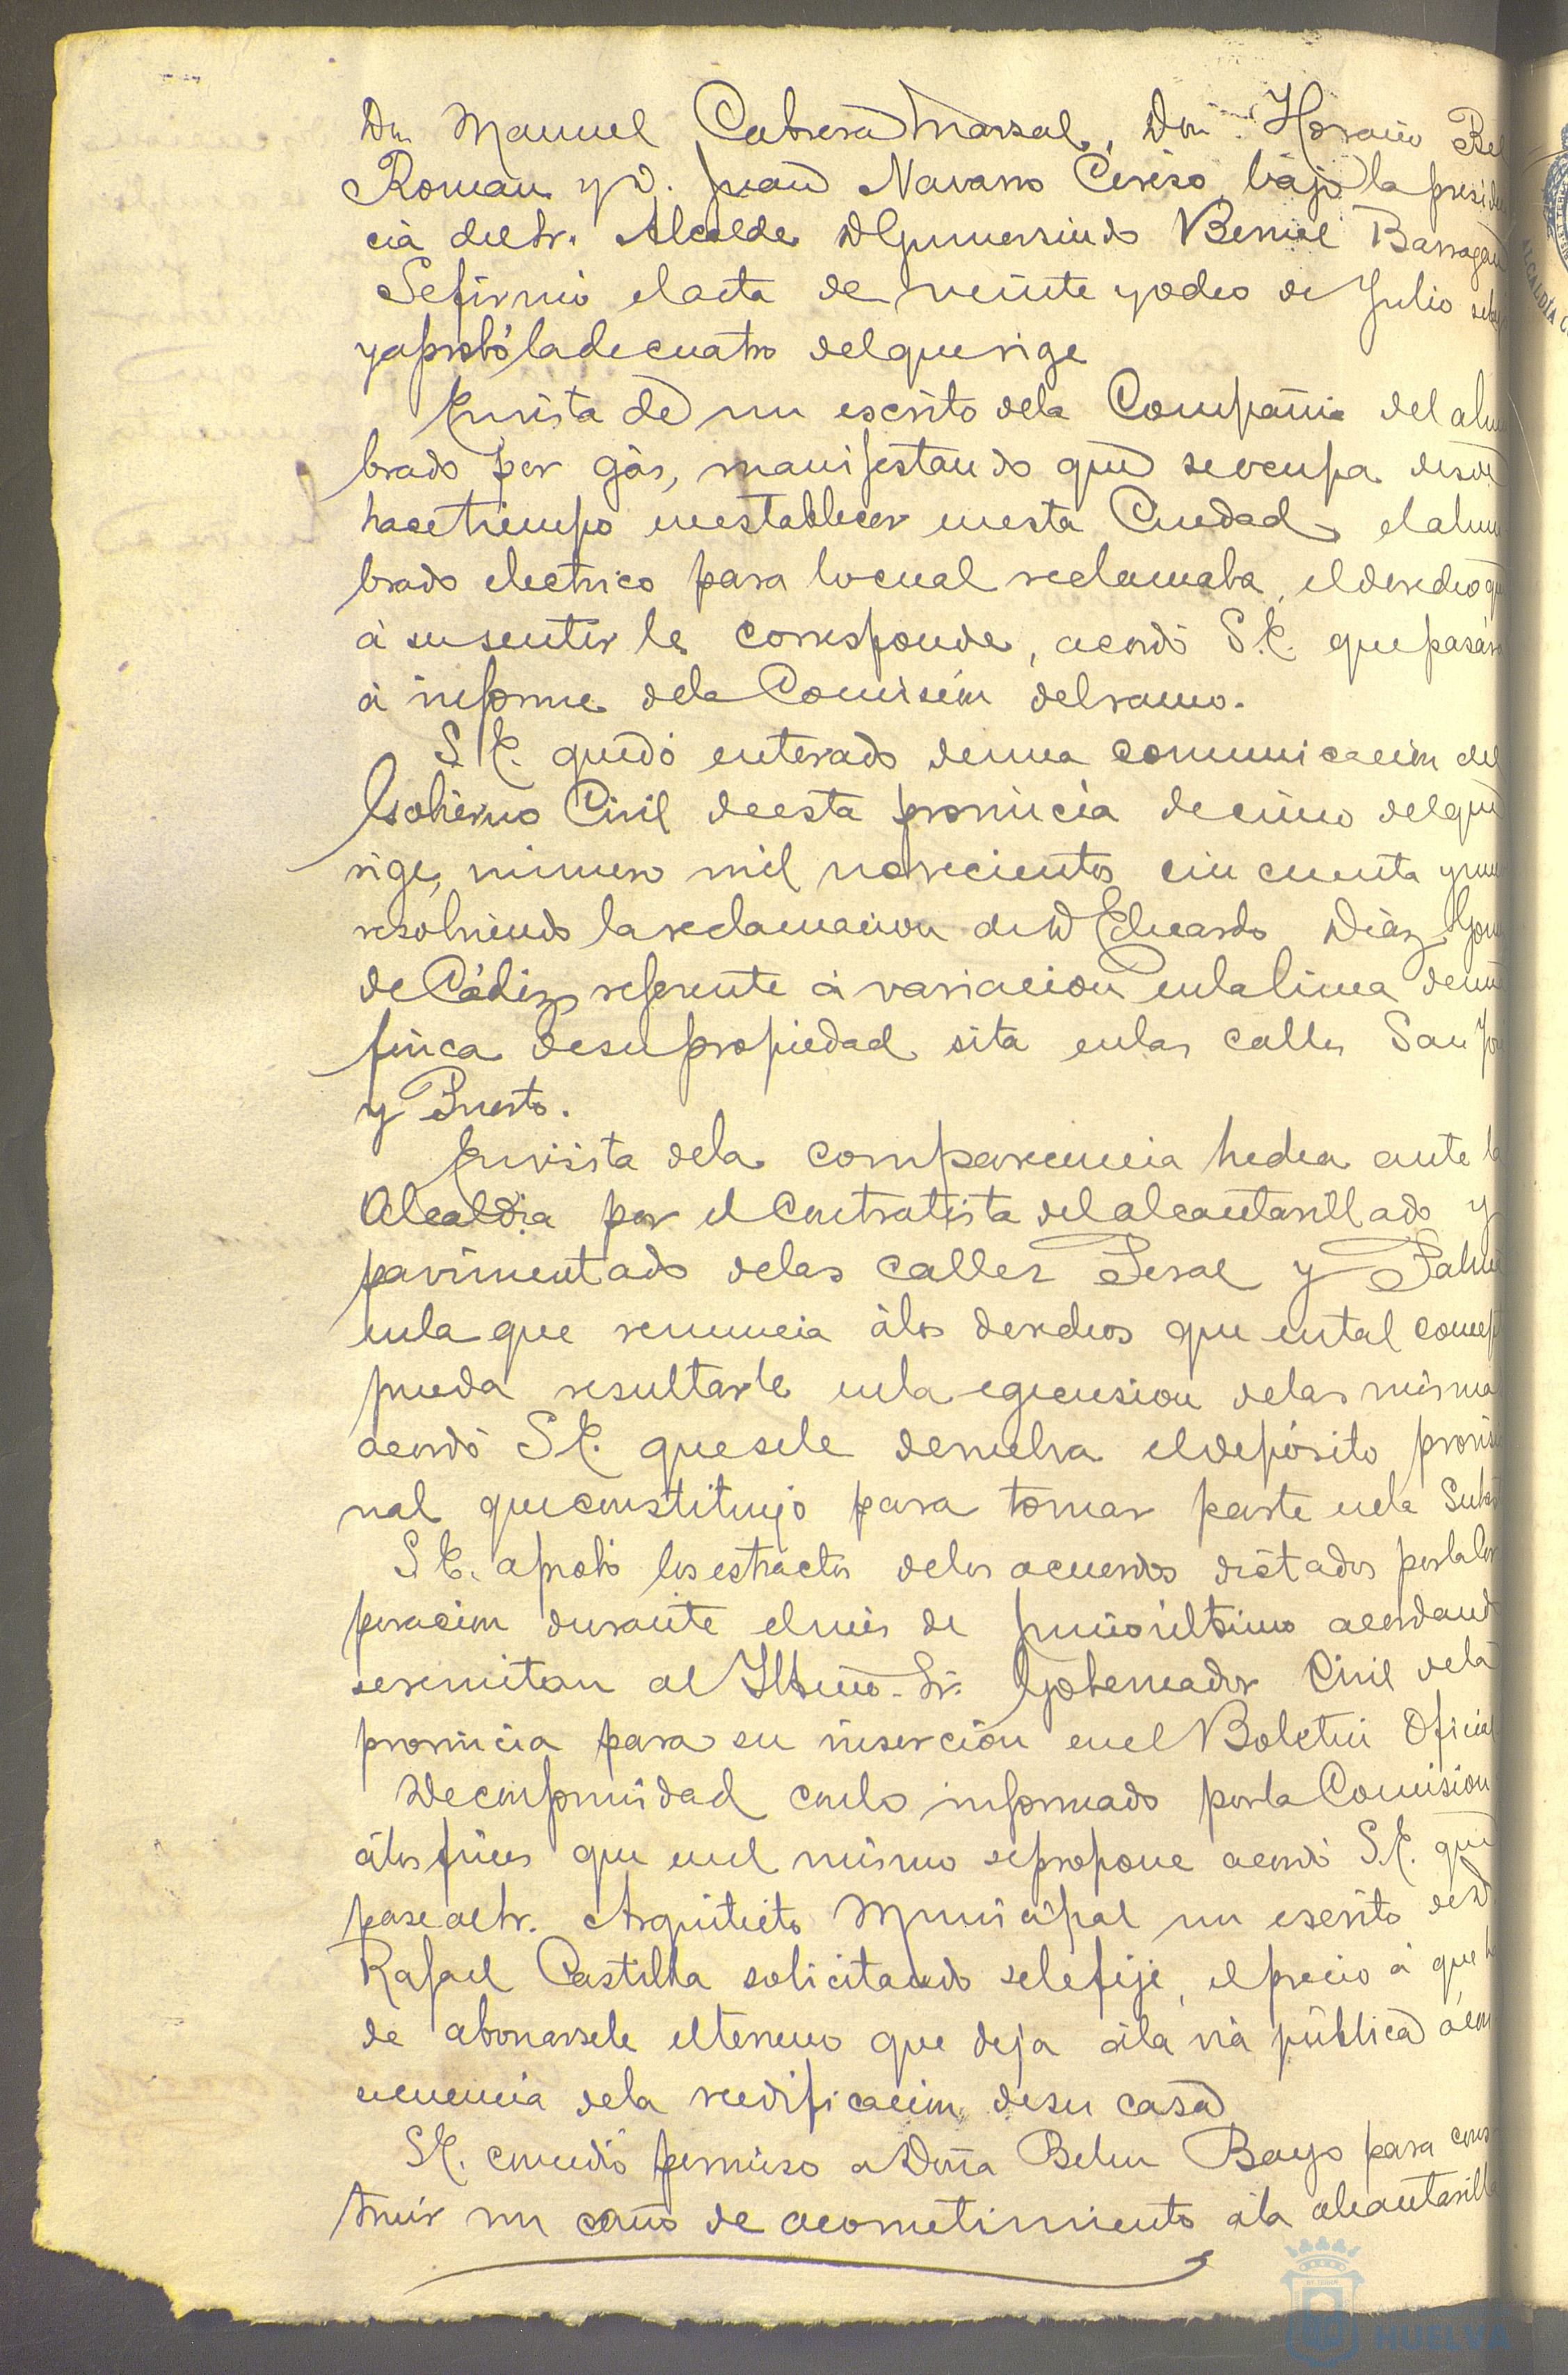 Dn Manuel Cabrera Marzal, Don Horacio Bel
Roman y D. Juan Navarro Cerezo, bajo la presiden
cia del Sr. Alcalde D Gumersindo Bernal Barragan
Se firmó el acta de veinte y ocho de Julio
y aprobó la de cuatro del que rige
En vista de un escrito de la Compañia del alum
brado por gás, manifestando que se ocupa desde
hace tiempo en establecer en esta Ciudad el alum
brado electrico para lo cual reclamaba, el derecho que
á su sentir le corresponde, acordó S.E. que pasára
á informe de la Comisión del ramo.
S.E. quedó enterado de una comunicacion del
Gobierno Civil de esta provincia de cinco del que
rige, número mil novecientos cincuenta y uno
resolviendo la reclamacion de D Eduardo Diaz Gom
de Cádiz, referente á variacion en la linea de una
finca de su propiedad sita en las calles San Jo
y Puerto.
En vista de la comparecencia hecha ante la
Alcaldia por el Contratista del alcantarillado y
pavimentado de las calles Peral y
en la que renuncia á los derechos que en tal concep
pueda resultarle en la egecusion de las misma
acordó S.E. que se le devuelva el depósito provisio
nal que constituyó para tomar parte en la Subast
S.E. aprobó los estractos de los acuerdos dictados por la Cor
poracion durante el mes de Junio último acordand
se remitan al Iltmo. Sr. Gobernador Civil de la
provincia para su inserción en el Boletin Oficial
De conformidad con lo informado por la Comision
á los fines que en el mismo se propone acordó S.E. que
pase al Sr. Arquitecto Municipal un escrito de D
Rafael Castilla solicitando se le fije, el precio á que h
de abonarsele el terreno que deja á la via pública á con
secuencia de la reedificacion de su casa
S.E. concedió permiso a Doña Belen Bayo para cons
truir un caño de acometimiento á la alcantarilla
HUELVA